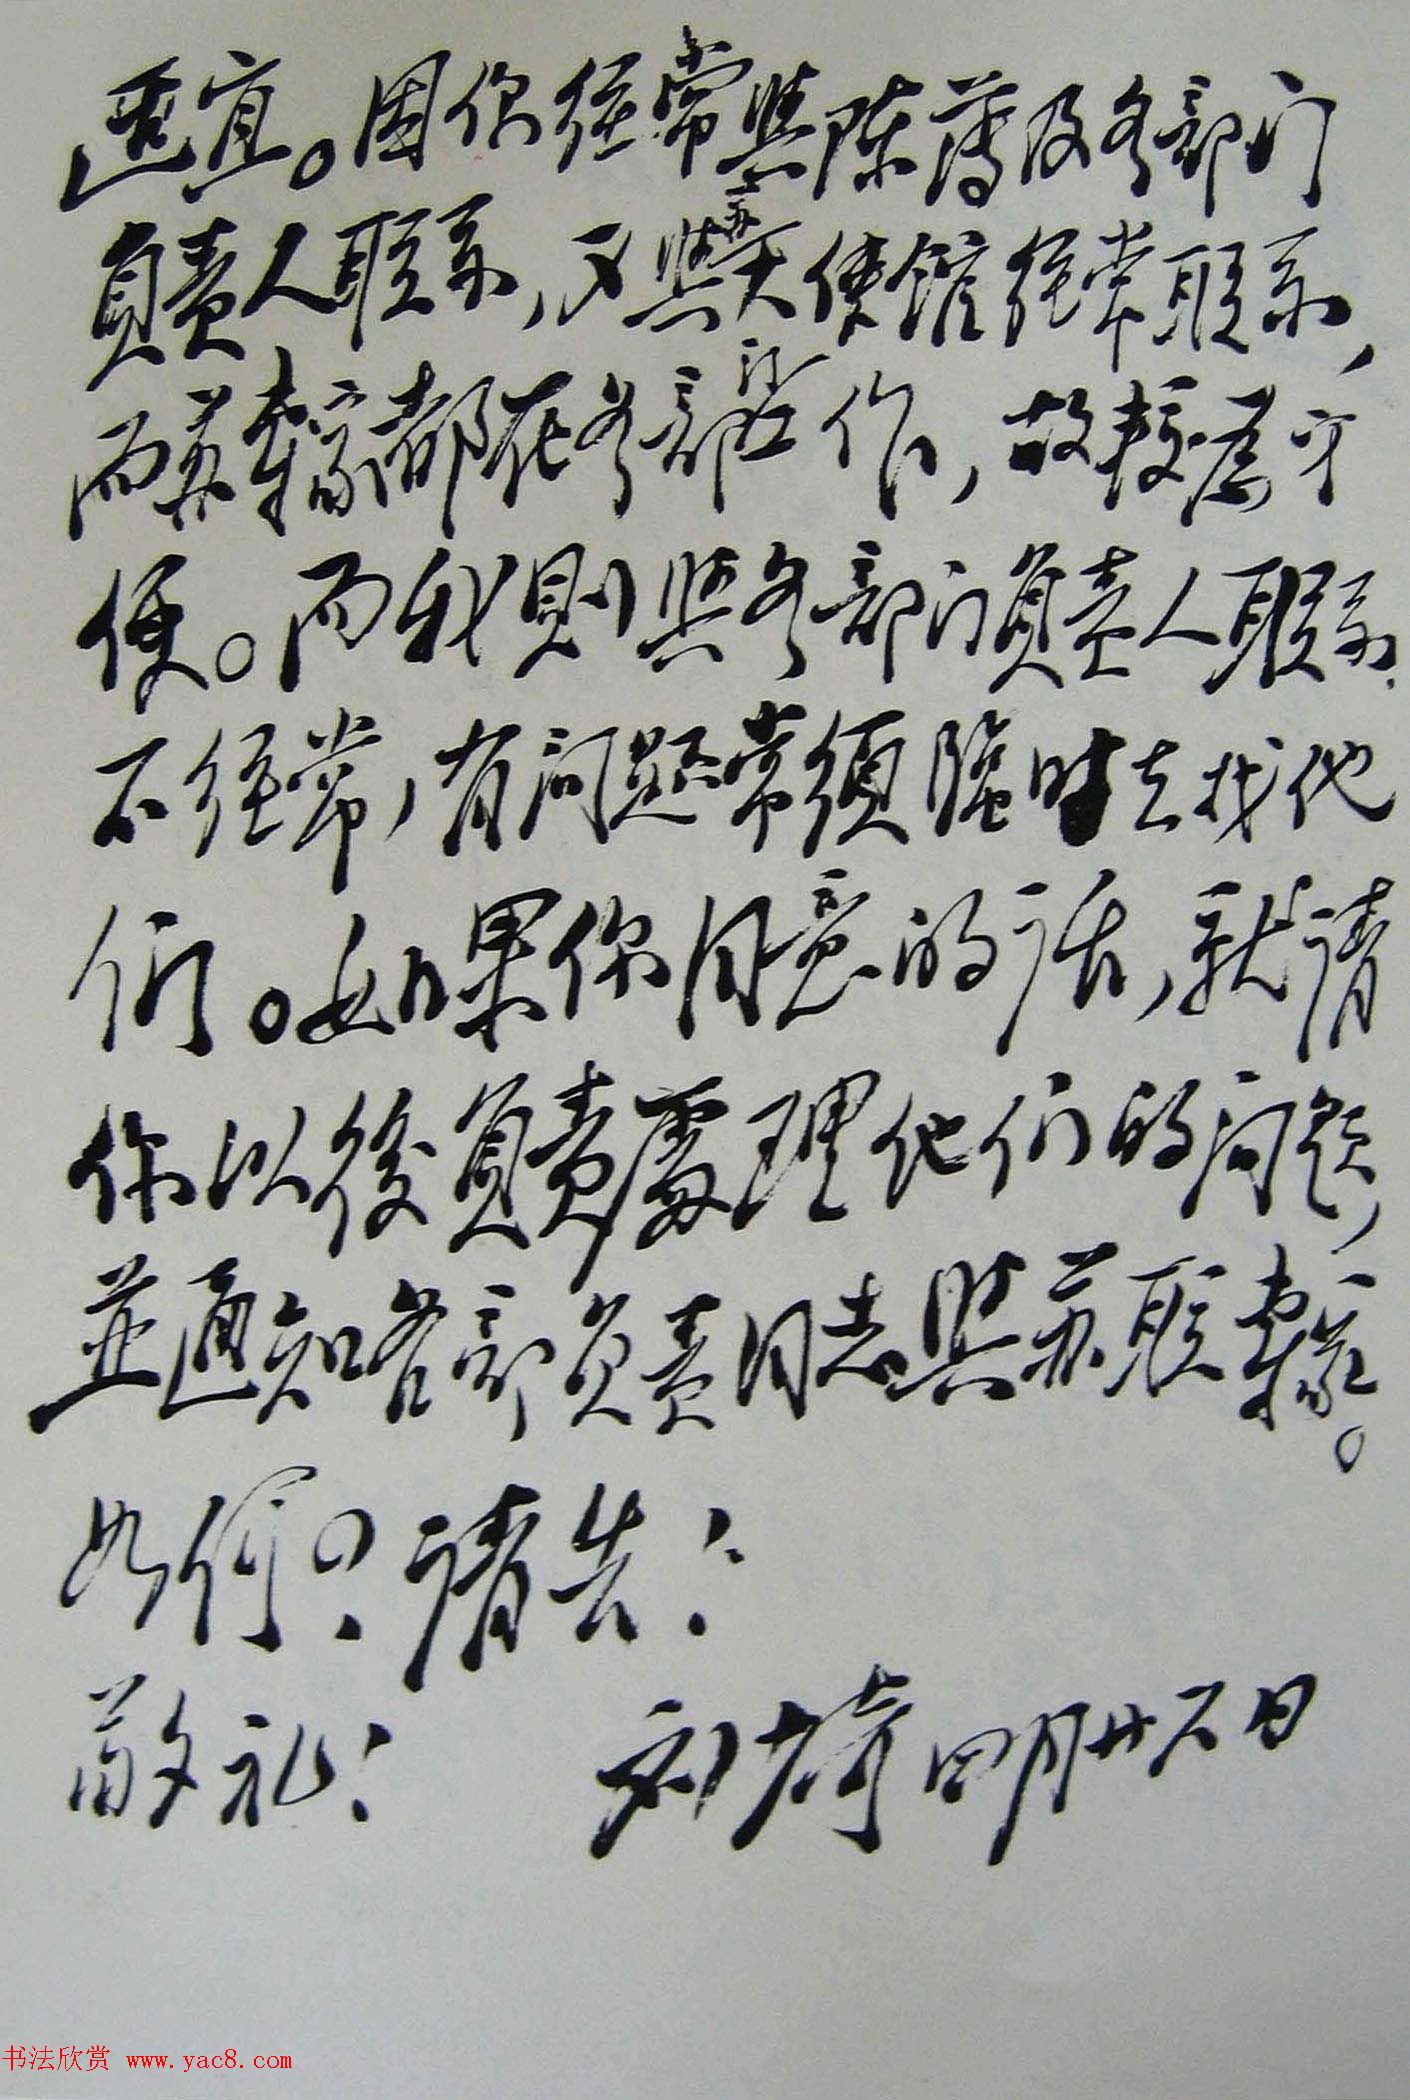 适宜。因你经常與陈薄及各部门
負責人联系，又與苏大使馆经常联系，
而苏專家都在各部门工作，故較為方
便。而我則與各部门負责人联系
不经常，有问题常須臨时去找他
们。如果你同意的话，就请
你以後負責處理他们的问题，
並通知各部负责同志與苏联專家。
如何？请告！
敬礼！ 刘少奇 四月廿六日
书法欣赏 www.yac8.com